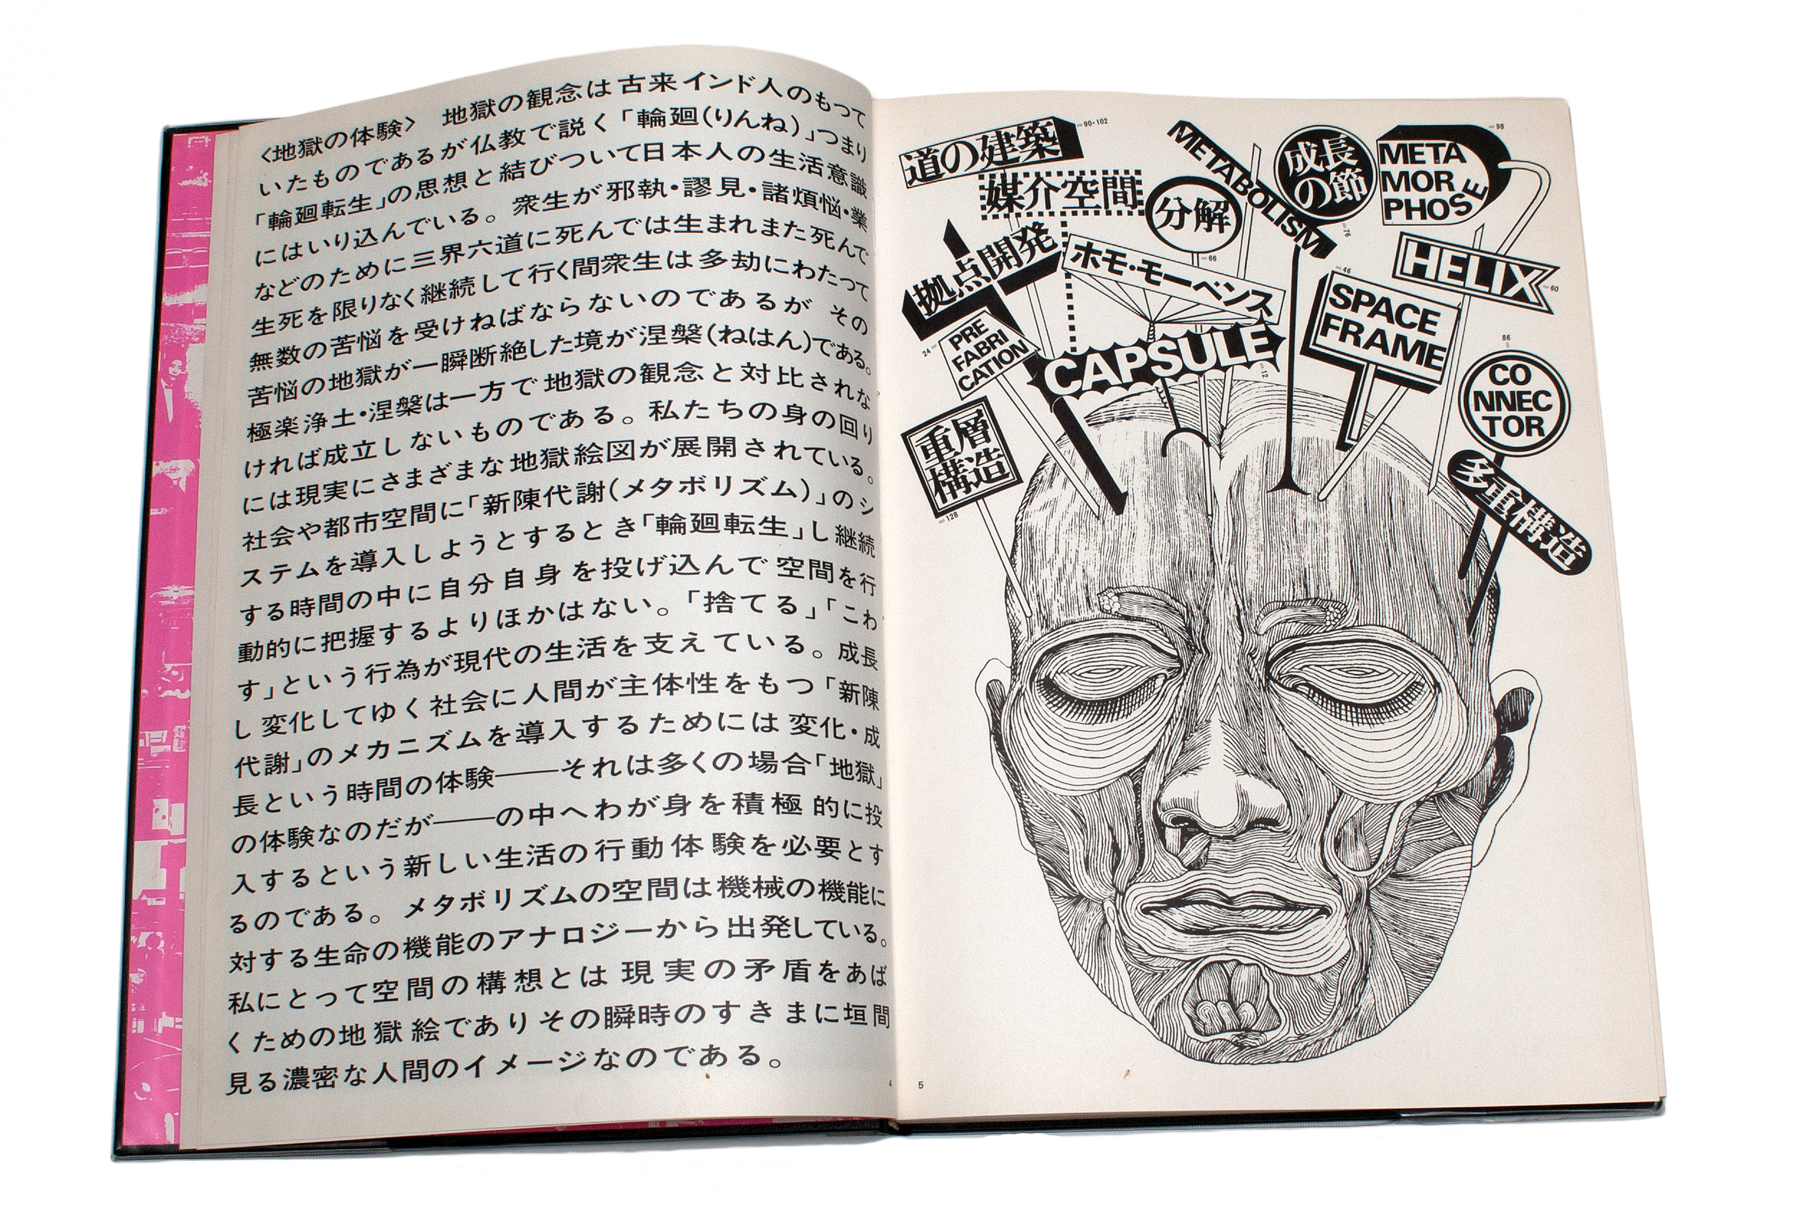 〈地獄の体験〉　地獄の観念は古来インド人のもって
いたものであるが仏教で説く「輪廻(りんね)」つまり
「輪廻転生」の思想と結びついて日本人の生活意識
にはいり込んでいる。衆生が邪執・謬見・諸煩悩・業
などのために三界六道に死んでは生まれまた死んで
生死を限りなく継続して行く間衆生は多劫にわたって
無数の苦悩を受けねばならないのであるが その
苦悩の地獄が一瞬断絶した境が涅槃(ねはん)である。
極楽浄土・涅槃は一方で地獄の観念と対比されな
ければ成立しないものである。私たちの身の回り
には現実にさまざまな地獄絵図が展開されている。
社会や都市空間に「新陳代謝(メタボリズム)」のシ
ステムを導入しようとするとき「輪廻転生」し継続
する時間の中に自分自身を投げ込んで空間を行
動的に把握するよりほかはない。「捨てる」「こわ
す」という行為が現代の生活を支えている。成長
し変化してゆく社会に人間が主体性をもつ「新陳
代謝」のメカニズムを導入するためには変化・成
長という時間の体験――それは多くの場合「地獄」
の体験なのだが――の中へわが身を積極的に投
入するという新しい生活の行動体験を必要とす
るのである。メタボリズムの空間は機械の機能に
対する生命の機能のアナロジーから出発している。
私にとって空間の構想とは現実の矛盾をあば
くための地獄絵でありその瞬時のすきまに垣間
見る濃密な人間のイメージなのである。
4
道の建築
90・102
媒介空間
分解
66
METABOLISM
76
成長
の節
META
MOR
PHOSE
98
拠点開発
ホモ・モーベンス
HELIX
60
PRE
FABRI
CATION
24
CAPSULE
12
SPACE
FRAME
46
CO
NNEC
TOR
86
重層
構造
128
多重構造
5